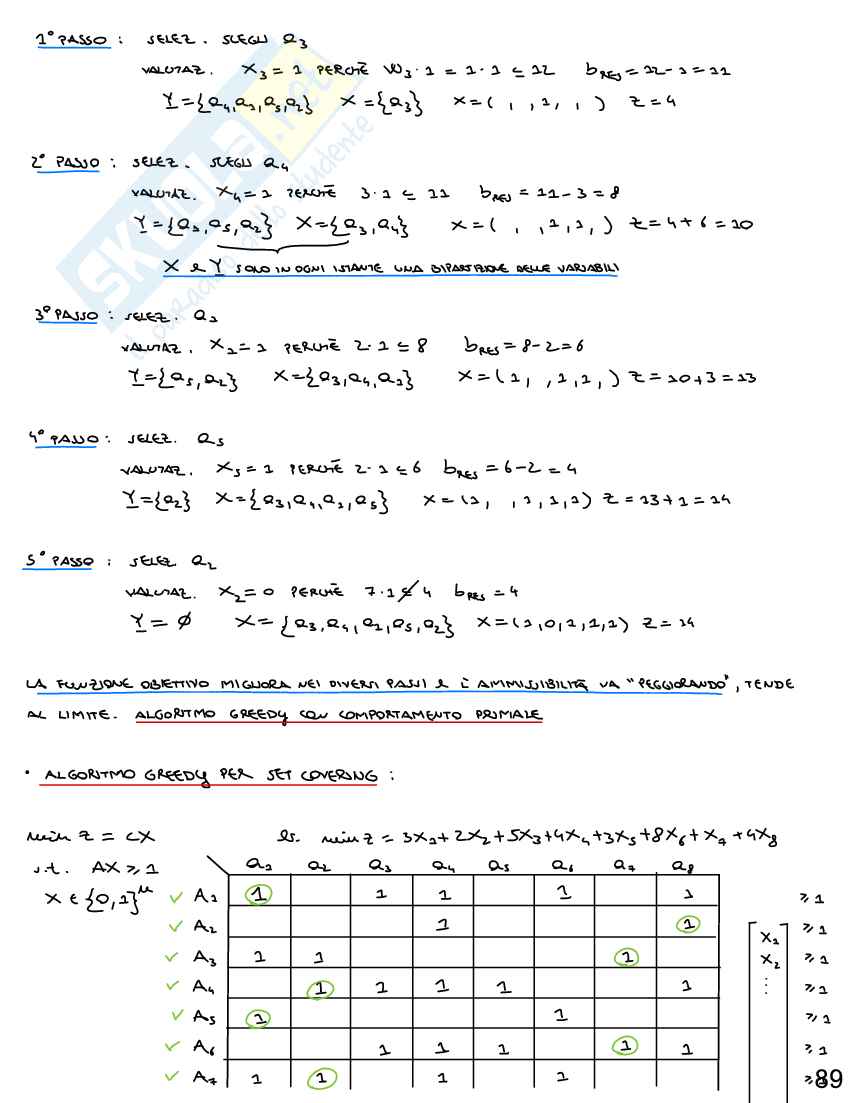 1° PASSO : SELEZ. SCEGLI a₃
VALUTAZ. X₃ = 1 PERCHÉ W₃·1 = 1·1 ≤ 12 b_RES = 12-1 = 11
Y = {a₄, a₁, a₅, a₂} X = {a₃} x = ( , , 1, , ) z = 4
2° PASSO : SELEZ. SCEGLI a₄
VALUTAZ. X₄ = 1 PERCHÉ 3·1 ≤ 11 b_RES = 11-3 = 8
Y = {a₁, a₅, a₂} X = {a₃, a₄} x = ( , , 1, 1, ) z = 4+6 = 10
X e Y SONO IN OGNI ISTANTE UNA BIPARTIZIONE DELLE VARIABILI
3° PASSO : SELEZ. a₁
VALUTAZ. X₁ = 1 PERCHÉ 2·1 ≤ 8 b_RES = 8-2 = 6
Y = {a₅, a₂} X = {a₃, a₄, a₁} x = (1, , 1, 1, ) z = 10+3 = 13
4° PASSO : SELEZ. a₅
VALUTAZ. X₅ = 1 PERCHÉ 2·1 ≤ 6 b_RES = 6-2 = 4
Y = {a₂} X = {a₃, a₄, a₁, a₅} x = (1, , 1, 1, 1) z = 13+1 = 14
5° PASSO : SELEZ. a₂
VALUTAZ. X₂ = 0 PERCHÉ 7·1 ≰ 4 b_RES = 4
Y = ∅ X = {a₃, a₄, a₁, a₅, a₂} x = (1, 0, 1, 1, 1) z = 14
LA FUNZIONE OBIETTIVO MIGLIORA NEI DIVERSI PASSI e L'AMMISSIBILITÀ VA "PEGGIORANDO", TENDE
AL LIMITE. ALGORITMO GREEDY CON COMPORTAMENTO PRIMALE
• ALGORITMO GREEDY PER SET COVERING :
min z = cX Es. min z = 3X₁+2X₂+5X₃+4X₄+3X₅+8X₆+X₇+4X₈
s.t. AX ≥ 1 a₁ a₂ a₃ a₄ a₅ a₆ a₇ a₈
X ∈ {0,1}ⁿ ✓ A₁ 1 1 1 1 1 ≥ 1
✓ A₂ 1 1 X₁ ≥ 1
✓ A₃ 1 1 1 X₂ ≥ 1
✓ A₄ 1 1 1 1 1 ⋮ ≥ 1
✓ A₅ 1 1 ≥ 1
✓ A₆ 1 1 1 1 1 ≥ 1
✓ A₇ 1 1 1 1 ≥
89
SKUOLA.net
il paradiso dello studente